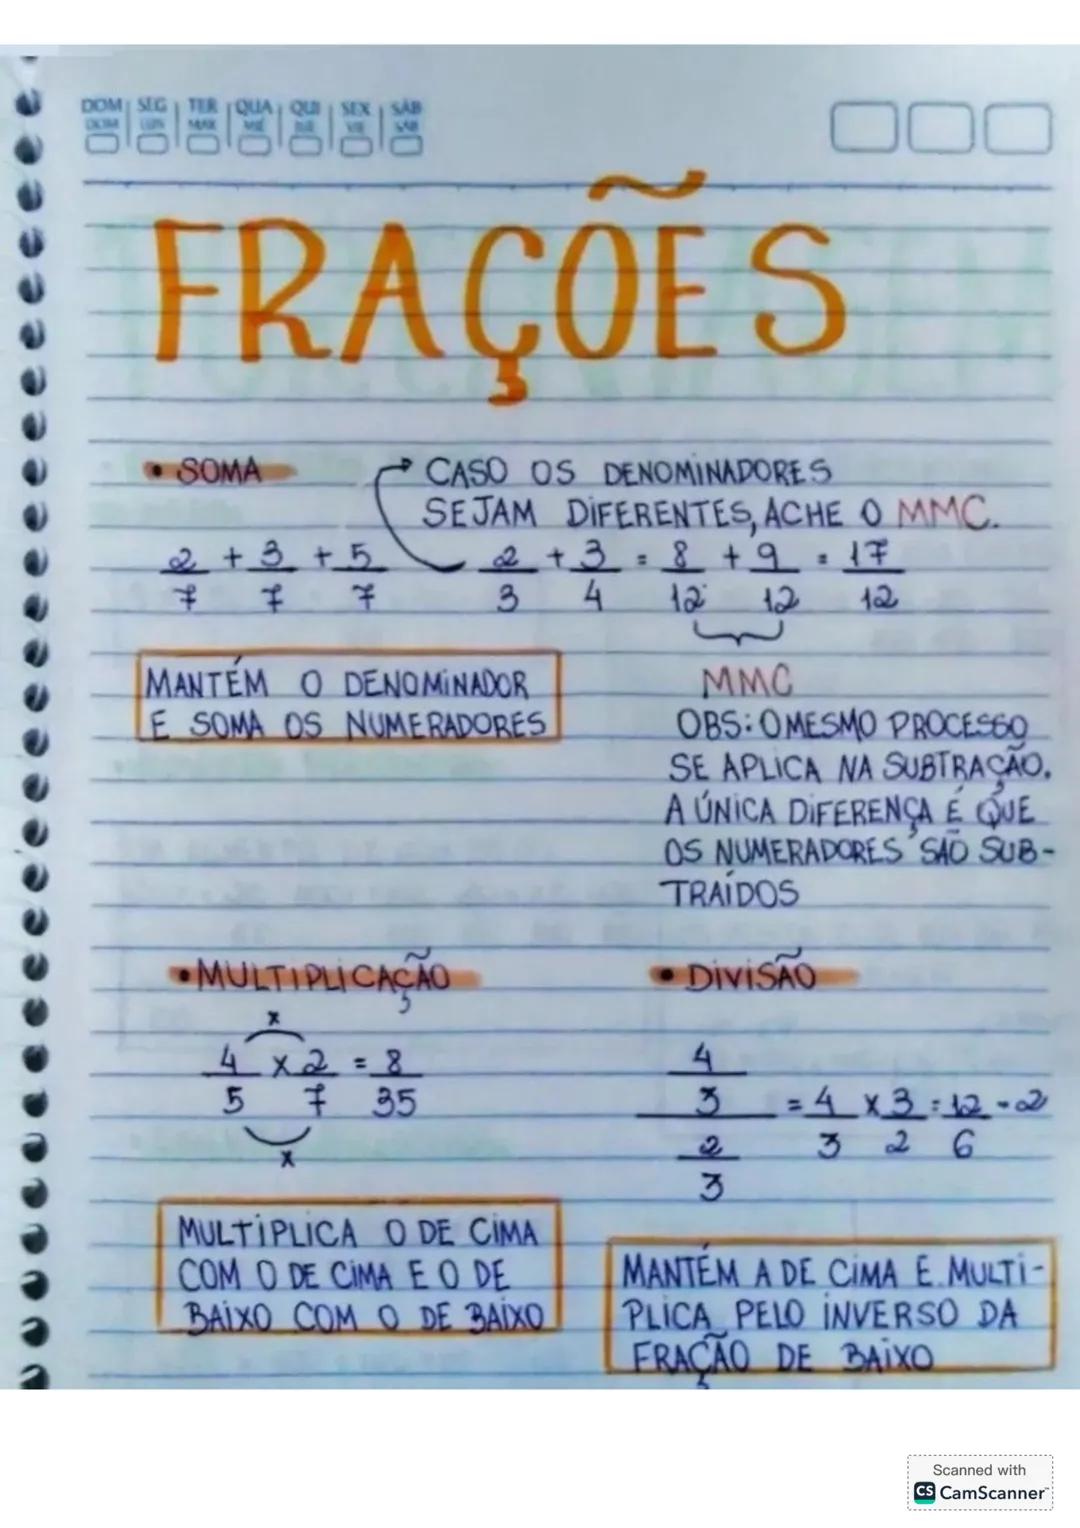 DOM SEG TER QUA QUI SEX SÁB
DOM LUN MAR MIÉ JUE VIE SÁB
FRAÇÕES
• SOMA
CASO OS DENOMINADORES
SEJAM DIFERENTES, ACHE O MMC.
2/7 + 3/7 + 5/7
2/3 + 3/4 = 8/12 + 9/12 = 17/12
MANTÉM O DENOMINADOR
E SOMA OS NUMERADORES
MMC
OBS: O MESMO PROCESSO
SE APLICA NA SUBTRAÇÃO.
A ÚNICA DIFERENÇA É QUE
OS NUMERADORES SÃO SUB-
TRAÍDOS
• MULTIPLICAÇÃO
x
4/5 x 2/7 = 8/35
x
MULTIPLICA O DE CIMA
COM O DE CIMA E O DE
BAIXO COM O DE BAIXO
• DIVISÃO
4/3
2/3
= 4/3 x 3/2 = 12/6 = 2
MANTÉM A DE CIMA E MULTI-
PLICA PELO INVERSO DA
FRAÇÃO DE BAIXO
Scanned with
CS CamScanner